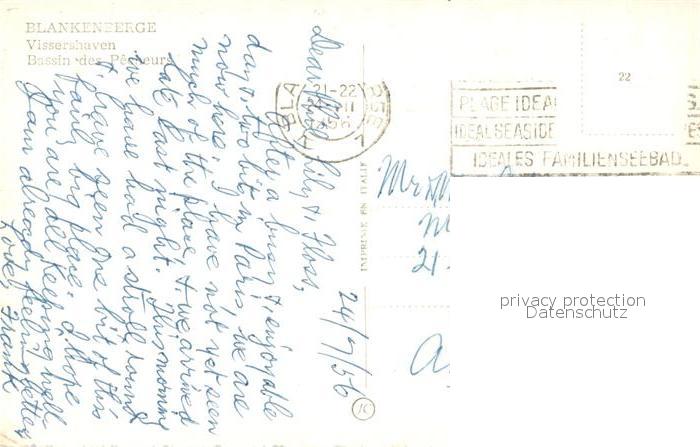 BLANKENBERGE
Vissershaven
Bassin des Pêcheurs
24/7/56
Dear Lily & Floss,
After a busy & enjoyable
days two bit in Paris we are
now here. I have not yet seen
much of the place, & we arrived
late last night. This morning
we have had a stroll round
& have seen one bit of this
fairly big place. I hope
you are all keeping well
I am already feeling better
Love, Frank
BLA
21-22
PLAGE IDEA
IDEALSEASIDE
IDEALES FAMILIENSEEBAD
22
IMPRIMÉ EN ITALIE
Mr & M
21
privacy protection
Datenschutz